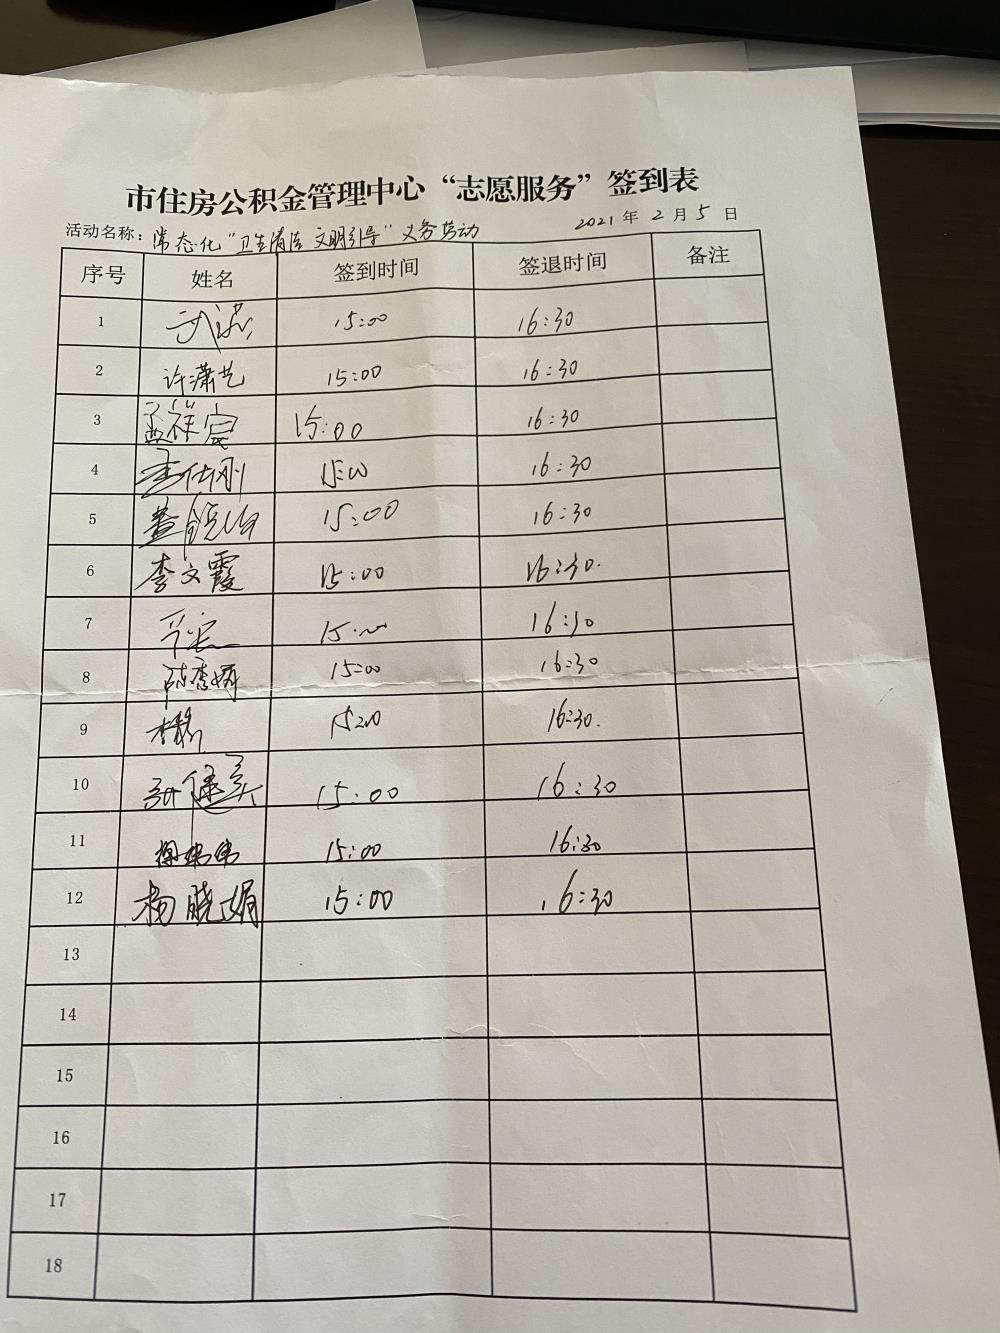 市住房公积金管理中心“志愿服务”签到表
活动名称：常态化“卫生清洁 文明引导”义务劳动 2021年2月5日
序号 姓名 签到时间 签退时间 备注
1 15:00 16:30
2 许潇艺 15:00 16:30
3 孟祥宸 15:00 16:30
4 李仕刚 15:00 16:30
5 15:00 16:30
6 李文霞 15:00 16:30.
7 15:00 16:30
8 陈香娟 15:00 16:30
9 15:00 16:30.
10 15:00 16:30
11 15:00 16:30
12 杨晓娟 15:00 16:30
13
14
15
16
17
18